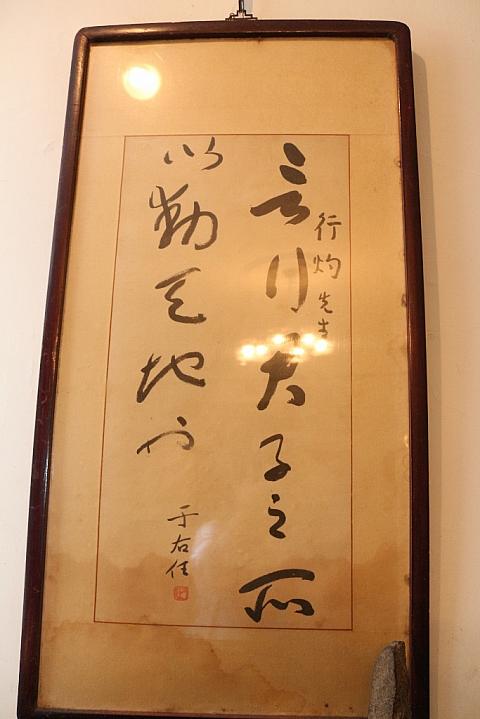 行灼先生
言行君子之所
以動天地也
于右任